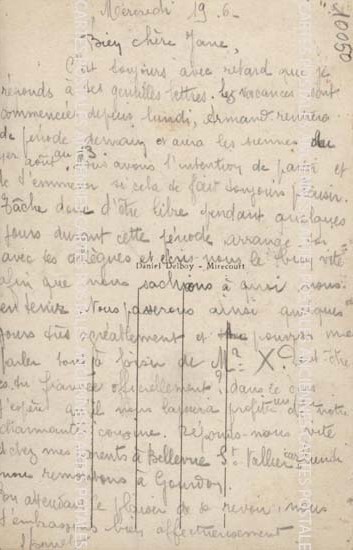 Mercredi 19.6.
10050
Bien chère Jane,
C'est toujours avec retard que je
réponds à tes gentilles lettres. les vacances sont
commencées depuis lundi, Armand rentrera
de période demain et aura les siennes du
1er août au 3 avons l'intention de
de t'emmener si cela te fait toujours plaisir.
Tâche donc d'être libre pendant quelques
jours durant cette période arrange
avec tes collègues et écris-nous le bien vite
afin que nous sachions à quoi nous
en tenir. Nous passerons ainsi quelques
jours très agréablement et tu pourras me
parler tout à loisir de Mr X? es-tu
fiancée officiellement? dans ce cas
j'espère qu'il nous laissera profiter de notre
charmante cousine. Réponds-nous vite
chez mes parents à Bellevue St Vallier car lundi
nous remontons à Gourdon
En attendant le plaisir de te revoir, nous
t'embrassons bien affectueusement
Daniel Delboy - Mirecourt
CARTES POSTALES